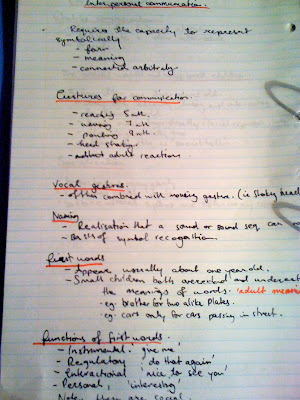 Interpersonal communication.
- Requires the capacity to represent
symbolically
- form
- meaning
- connected arbitrarily
Gestures for communication.
- reaching 5mth.
- waving 7mth
- pointing 9mth.
- head shaking
- adult reactions
Vocal gestures.
- often combined with moving gesture. (ie shaking head
Naming
- Realisation that a sound or sound seq. can
- Basis of symbol recognition.
First words
- Appear usually about one year old.
- Small children both overextend and underextend
the meaning of words. 'adult meaning
- eg. brother for two alike plates.
- eg. cars only for cars passing in street.
Functions of first words.
- Instrumental 'give me'
- Regulatory 'do that again'
- Interactional 'nice to see you'
- Personal, 'interesting'
Note they are social